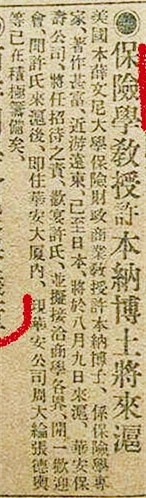 保險學教授許本納博士將來滬
美國本薛文尼大學保險財政商業教授許本納博士、係保險學專
家、著作甚富、近游遠東、已至日本、將於八月九日來滬、華安保
壽公司、將任招待之責、歡宴許氏、並擬接洽商學各界、開一歡迎
會、聞許氏來滬後、即任華安大廈內、現華安公司周大綸張德輿
等已在積極籌備矣、